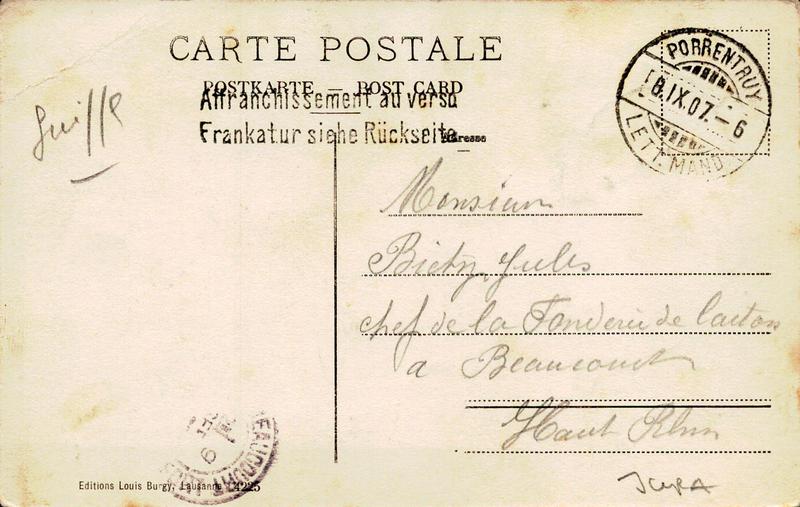 CARTE POSTALE
POSTKARTE — POST CARD
Affranchissement au verso
Frankatur siehe Rückseite
Adresse
PORRENTRUY
8.IX.07.-6
LETT. MAND
Suisse
Monsieur
Bietry Jules
chef de la Fonderie de laiton
a Beaucourt
Haut Rhin
EAUCOURT
Editions Louis Burgy, Lausanne 4225
JURA